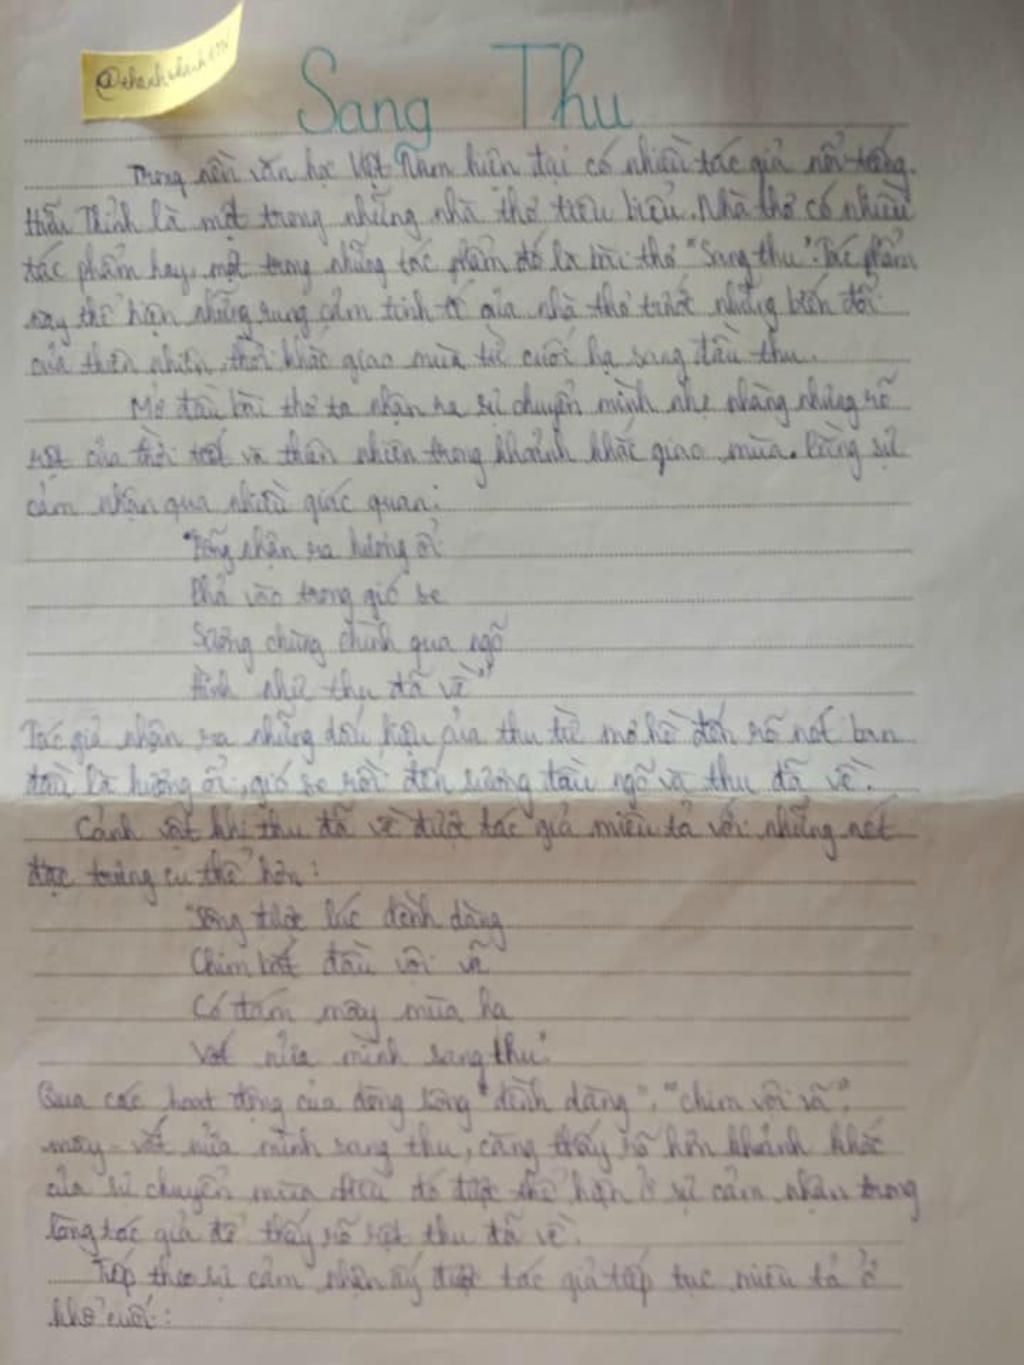 Sang Thu
Trong nền văn học Việt Nam hiện đại có nhiều tác giả nổi tiếng.
Hữu Thỉnh là một trong những nhà thơ tiêu biểu. Nhà thơ có nhiều
tác phẩm hay, một trong những tác phẩm đó là bài thơ "Sang thu". Tác phẩm
này thể hiện những rung cảm tinh tế của nhà thơ trước những biến đổi
của thiên nhiên, thời khắc giao mùa từ cuối hạ sang đầu thu.
Mở đầu bài thơ ta nhận ra sự chuyển mình nhẹ nhàng nhưng rõ
rệt của thời tiết và thiên nhiên trong khoảnh khắc giao mùa. Bằng sự
cảm nhận qua nhiều giác quan:
"Bỗng nhận ra hương ổi
Phả vào trong gió se
Sương chùng chình qua ngõ
Hình như thu đã về"
Tác giả nhận ra những dấu hiệu của thu từ mơ hồ đến rõ nét ban
đầu là hương ổi, gió se rồi đến sương đầu ngõ và thu đã về.
Cảnh vật khi thu đã về được tác giả miêu tả với những nét
đặc trưng cụ thể hơn:
"Sông được lúc dềnh dàng
Chim bắt đầu vội vã
Có đám mây mùa hạ
Vắt nửa mình sang thu"
Qua các hoạt động của dòng sông "dềnh dàng", "chim vội vã",
mây - vắt nửa mình sang thu, càng thấy rõ hơn khoảnh khắc
của sự chuyển mùa điều đó được thể hiện ở sự cảm nhận trong
lòng tác giả để thấy rõ rệt thu đã về.
Tiếp theo sự cảm nhận ấy được tác giả tiếp tục miêu tả ở
khổ cuối: